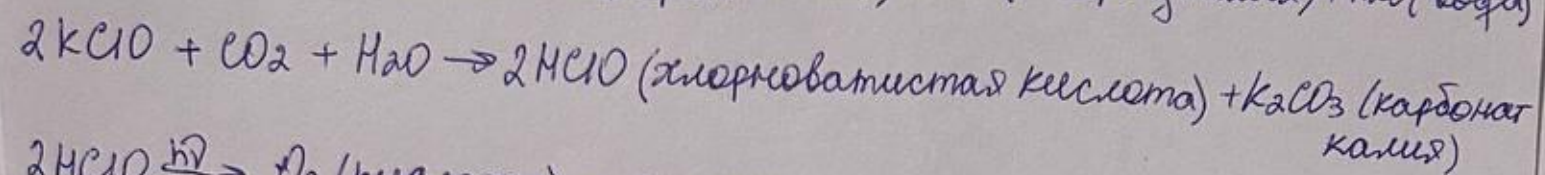 2KClO + CO2 + H2O → 2HClO (хлорноватистая кислота) + K2CO3 (карбонат
калия)
2HClO hν →